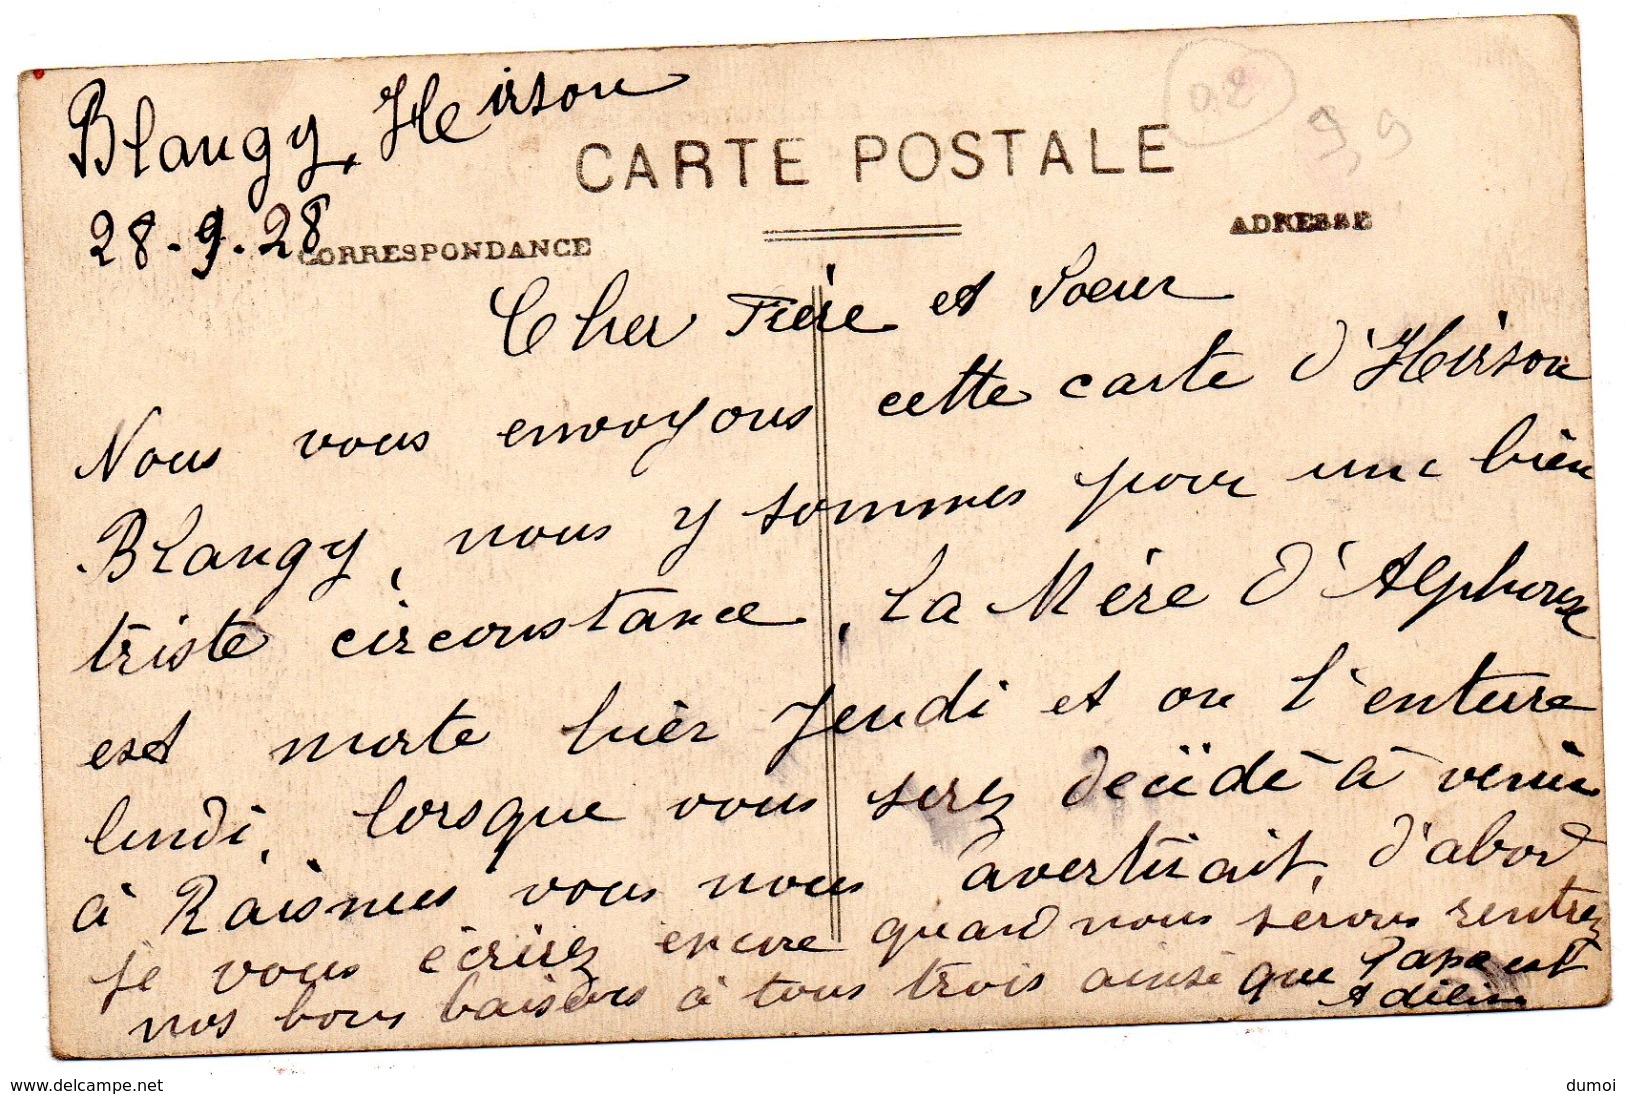 Blangy, Heirson
0.2
9,9
CARTE POSTALE
28.9.28
CORRESPONDANCE
ADRESSE
Cher Frére et Soeur
Nous vous envoyons cette carte d'Heirson
Blangy, nous y sommes pour une bien
triste circonstance, La Mére d'Alphonse
est morte hier Jeudi et on l'enterre
lundi, lorsque vous serez decidé à venir
à Raismes vous nous avertirait, d'abord
je vous écrirez encore quand nous sérons rentrez
nos bons baisers à tous trois ainsi que Papa et
Adeline
www.delcampe.net
dumoi